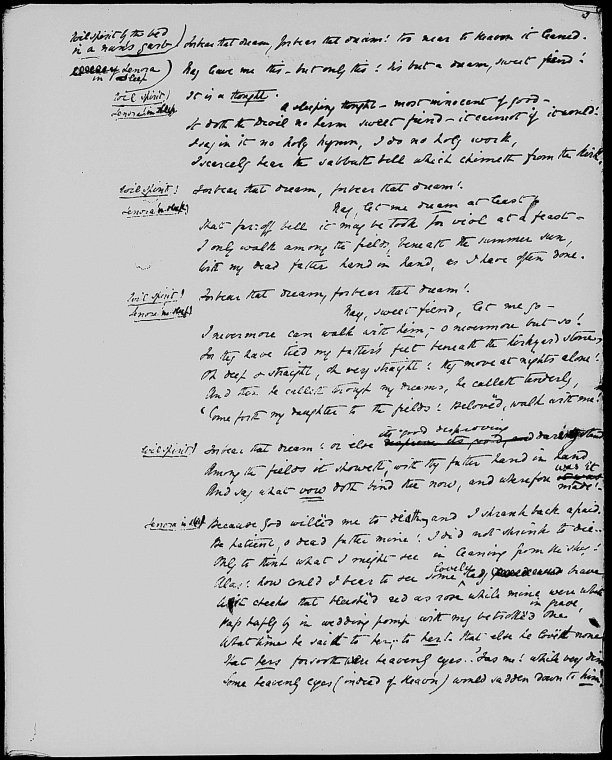 3
Evil spirit by the bed
in a nun's garb
Forbear that dream, forbear that dream! too near to Heaven it leaned.
Lenora
in sleep
Nay leave me this - but only this! tis but a dream, sweet fiend!
Evil spirit
It is a thought.
Lenora in sleep
a sleeping thought - most innocent of good -
It doth the Devil no harm sweet fiend - it cannot if it would.
I say in it no holy hymn, I do no holy work,
I scarcely hear the sabbath bell which chimeth from the kirk.
Evil spirit!
Forbear that dream, forbear that dream!
Lenora in sleep
Nay, let me dream at least
That far-off bell it may be took for viol at a feast -
I only walk among the fields, beneath the summer sun,
With my dead father hand in hand, as I have often done.
Evil spirit!
Forbear that dream, forbear that dream!
Lenora in sleep!
Nay, sweet fiend, let me go -
I nevermore can walk with him, - o nevermore but so!
For they have tied my father's feet beneath the kirkyard stones
Oh deep & straight, oh very straight! they move at nights alone!
And then he calleth through my dreams, he calleth tenderly,
'Come forth my daughter to the fields! Beloved, walk with me!
Evil spirit!
its good disproving
Forbear that dream! or else
Among the fields it showeth, with thy father hand in hand
And say what vow doth bind thee now, and wherefore was it
made!
Lenora in sleep
Because God willed me to death, and I shrank back afraid.
Be patient, o dead father mine! I did not shrink to die..
Only to think what I might see in leaning from the sky!
Alas! how could I bear to see some lovely lady brave
With cheeks that blushed red as rose while mine were white
in grave,
Pass haply by in wedding pomp with my betrothed one
What time he saith to her, to her! that else he loveth none
That hers forsooth were heavenly eyes.. Ius me! while very dim
Some heavenly eyes (indeed of Heaven) would sadden down to him!